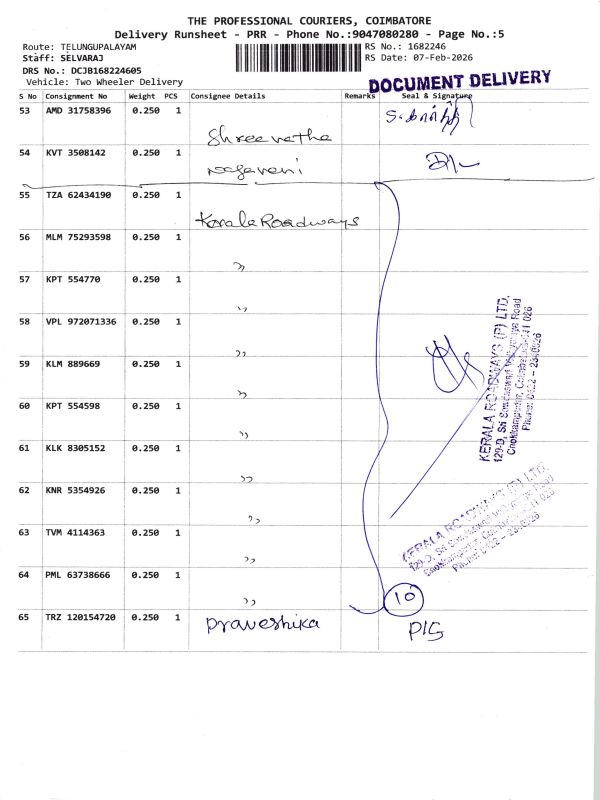 THE PROFESSIONAL COURIERS, COIMBATORE
Delivery Runsheet - PRR - Phone No.:9047080280 - Page No.:5
Route: TELUNGUPALAYAM
RS No.: 1682246
Staff: SELVARAJ
RS Date: 07-Feb-2026
DRS No.: DCJB168224605
Vehicle: Two Wheeler Delivery
DOCUMENT DELIVERY
S No Consignment No Weight PCS Consignee Details Remarks Seal & Signature
53 AMD 31758396 0.250 1
Shree
54 KVT 3508142 0.250 1
nagaveni
55 TZA 62434190 0.250 1
Kerala Roadways
56 MLM 75293598 0.250 1
"
57 KPT 554770 0.250 1
"
58 VPL 972071336 0.250 1
"
59 KLM 889669 0.250 1
"
60 KPT 554598 0.250 1
"
61 KLK 8305152 0.250 1
"
62 KNR 5354926 0.250 1
"
63 TVM 4114363 0.250 1
"
64 PML 63738666 0.250 1
"
10
65 TRZ 120154720 0.250 1 Praveshika
KERALA ROADWAYS (P) LTD.
129-D, Sri
Phone: 0422 -
KERALA ROADWAYS (P) LTD.
129-D, Sri